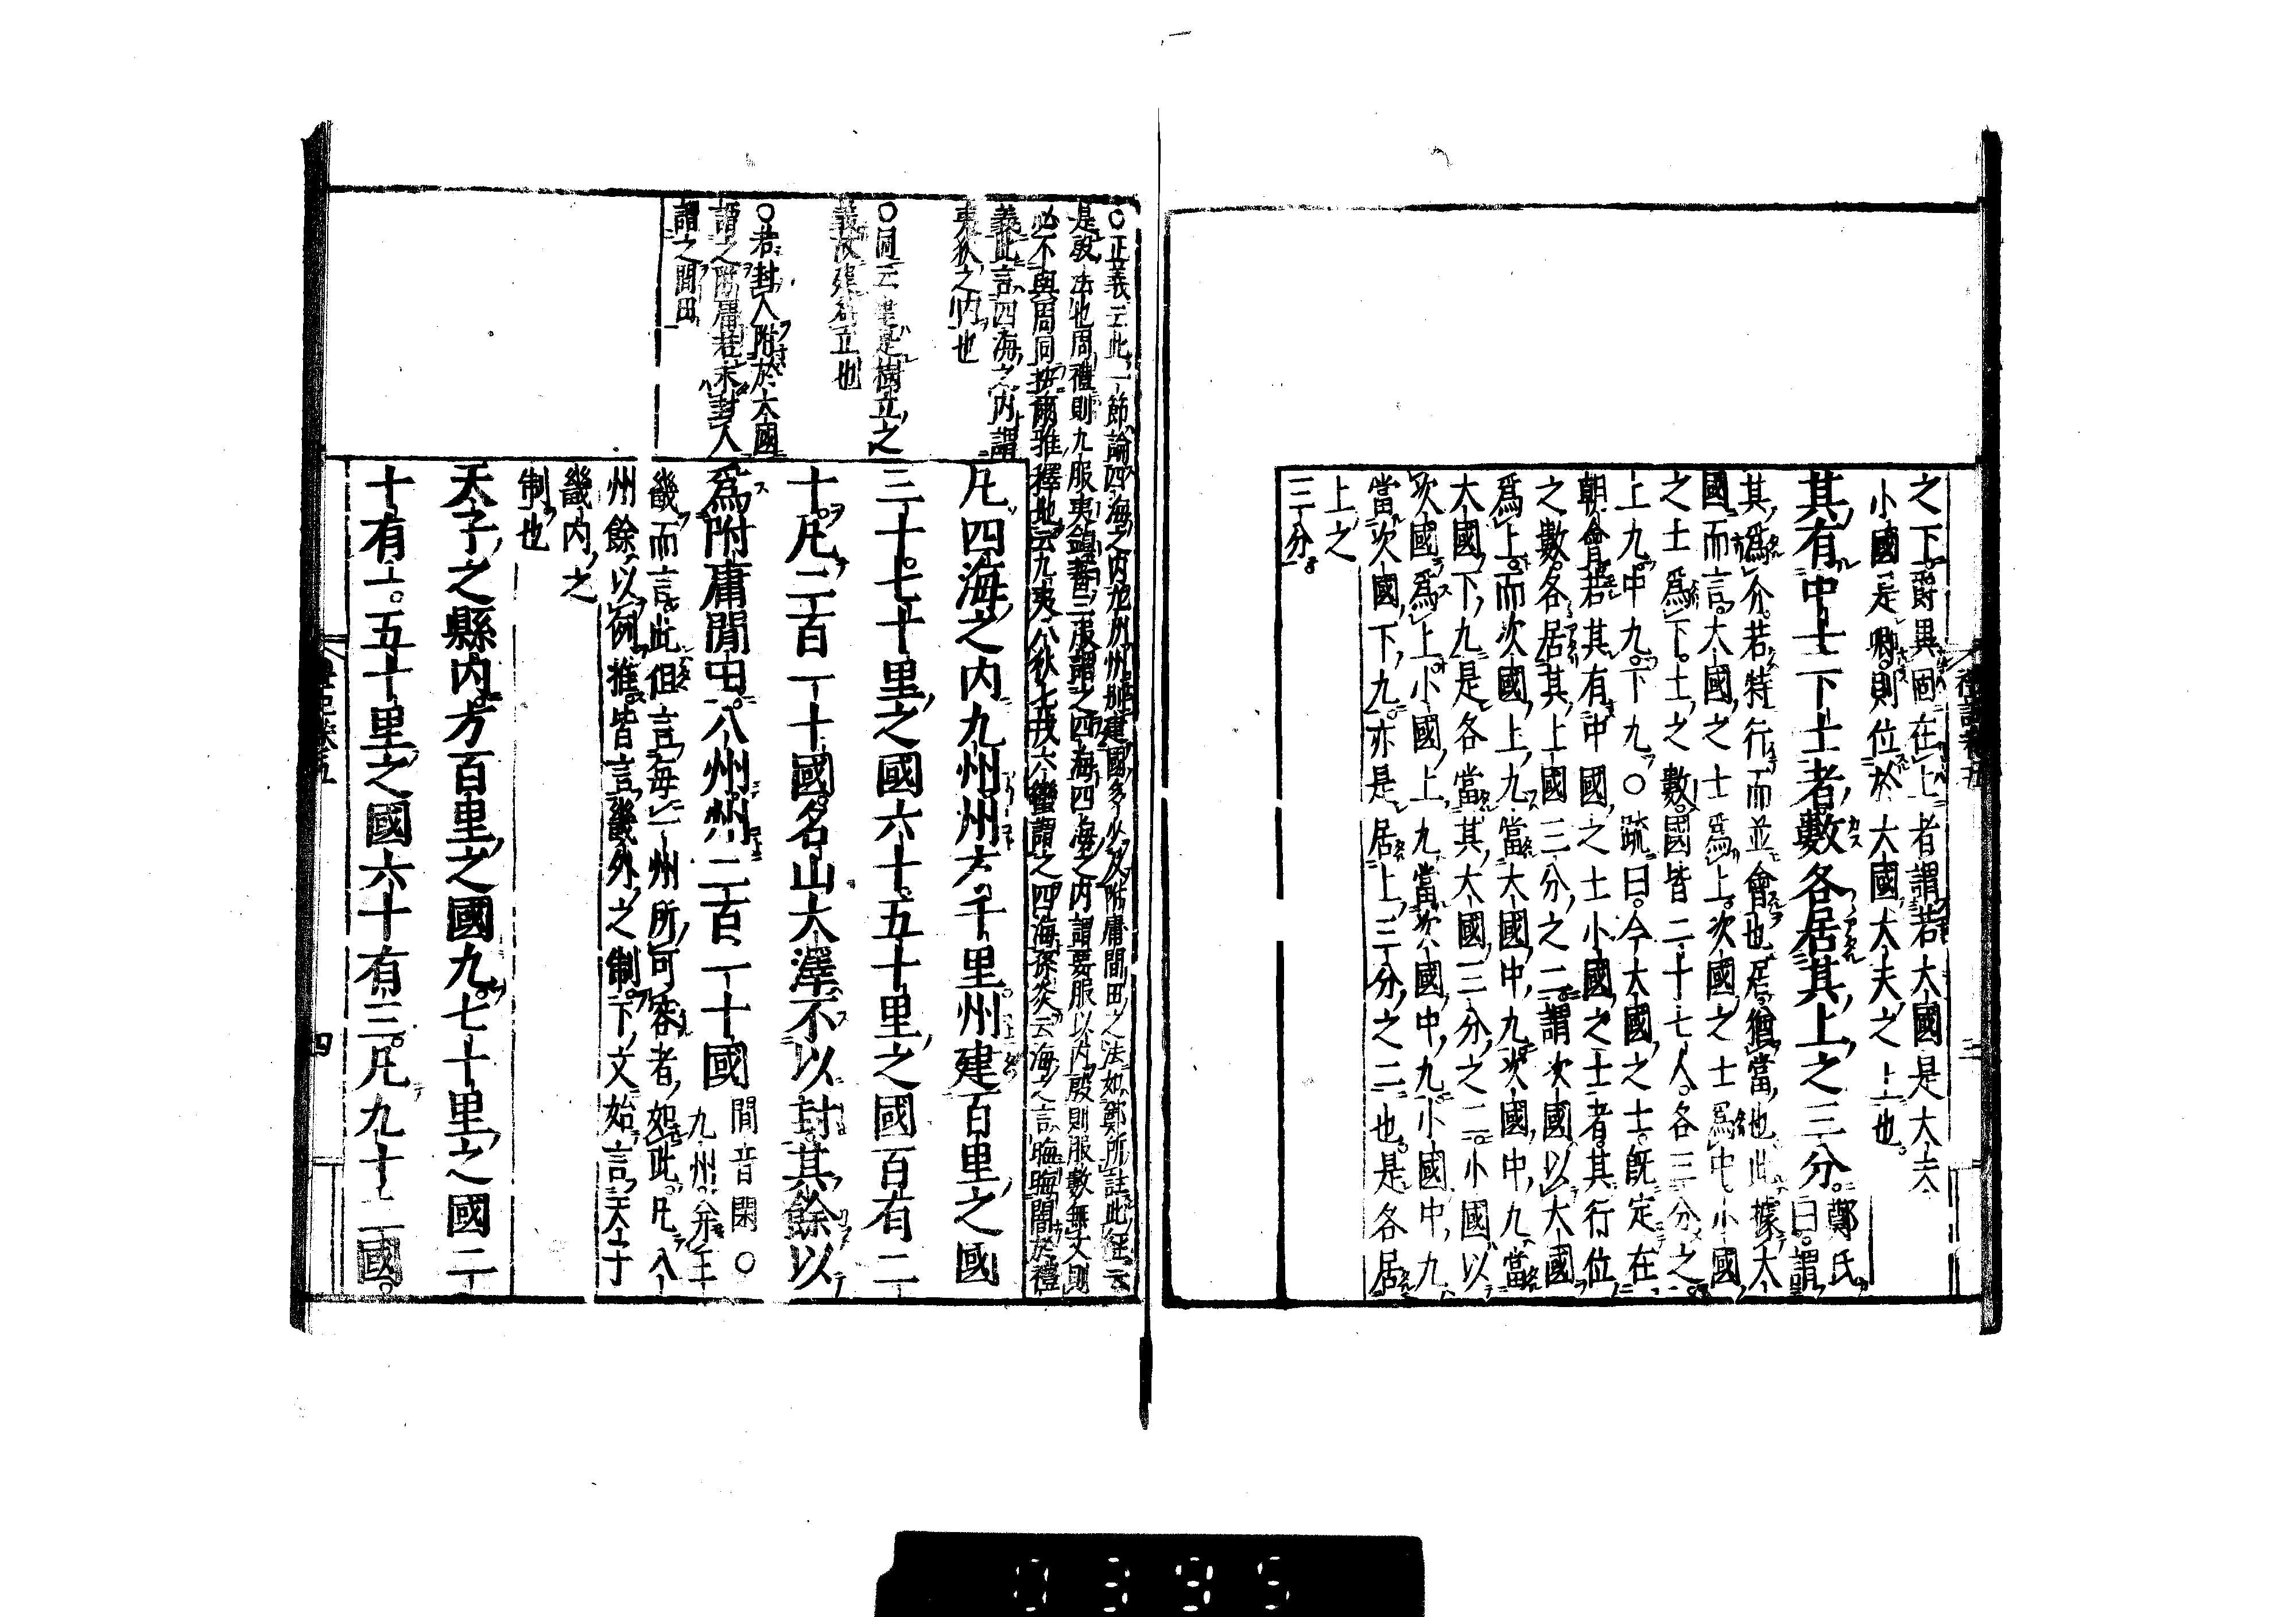 之下爵異固在上者謂若大國是大夫
小國是卿則位於大國大夫之上也
其有中士下士者數各居其上之三分鄭氏曰謂
其爲介若特行而並會也居猶當也此據大
國而言大國之士爲上次國之士爲中小國
之士爲下士之數國皆二十七人各三分之
上九中九下九○疏曰今大國之士既定在
朝會若其有中國之士小國之士者其行位
之數各居其上國三分之二謂次國以大國
爲上而次國上九當大國中九次國中九當
大國下九是各當其大國三分之二小國以
次國爲上小國上九當次國中九小國中九
當次國下九亦是居上三分之二也是各居
上之
三分
禮記卷五
三
○正義云此一節論四海之内九州州別建國多少及附庸間田之法如鄭所註此経云
是殷法也周禮則九服夷鎮蕃三服謂之四海四海之内謂要服以内殷則服數無文則
必不與周同按爾雅釋地云九夷八狄七戎六蠻謂之四海孫炎云海之言晦晦闇於禮
義此言四海之内謂
夷狄之内也
○同云建是樹立之
義故建爲立也
○若封人附於大國
謂之附庸若未封人
謂之間田
凡四海之内九州州方千里州建百里之國
三十七十里之國六十五十里之國百有二
十凡二百一十國名山大澤不以封其餘以
爲附庸間田八州州二百一十國間音閑○九州餘王
畿而言此但言每一州所可容者如此凡八
州餘以例推皆言畿外之制下文始言天子
畿内之
制也
天子之縣内方百里之國九七十里之國二
十有一五十里之國六十有三凡九十三國
四
0395